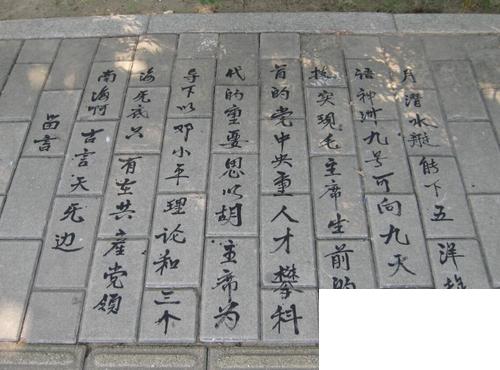 留言
南海啊古言天无边
海无只有在共产党领
导下以邓小平理论和三个
代的重要思以胡主席为
首的党中央重人才攀科
技实现毛主席生前的
语神州九号可向九天
月潜水艇能下五洋捉